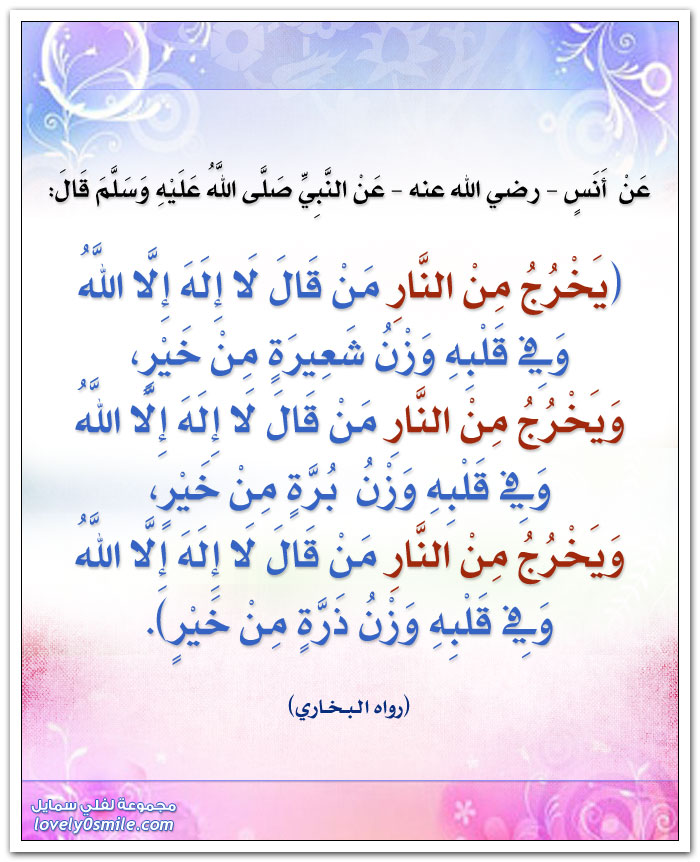 عَنْ أَنَسٍ - رضي الله عنه - عَنْ النَّبِيِّ صَلَّى اللَّهُ عَلَيْهِ وَسَلَّمَ قَالَ:
(يَخْرُجُ مِنْ النَّارِ مَنْ قَالَ لَا إِلَهَ إِلَّا اللَّهُ
وَفِي قَلْبِهِ وَزْنُ شَعِيرَةٍ مِنْ خَيْرٍ،
وَيَخْرُجُ مِنْ النَّارِ مَنْ قَالَ لَا إِلَهَ إِلَّا اللَّهُ
وَفِي قَلْبِهِ وَزْنُ بُرَّةٍ مِنْ خَيْرٍ،
وَيَخْرُجُ مِنْ النَّارِ مَنْ قَالَ لَا إِلَهَ إِلَّا اللَّهُ
وَفِي قَلْبِهِ وَزْنُ ذَرَّةٍ مِنْ خَيْرٍ).
(رواه البخاري)
مجموعة لفلي سمايل
lovely0smile.com